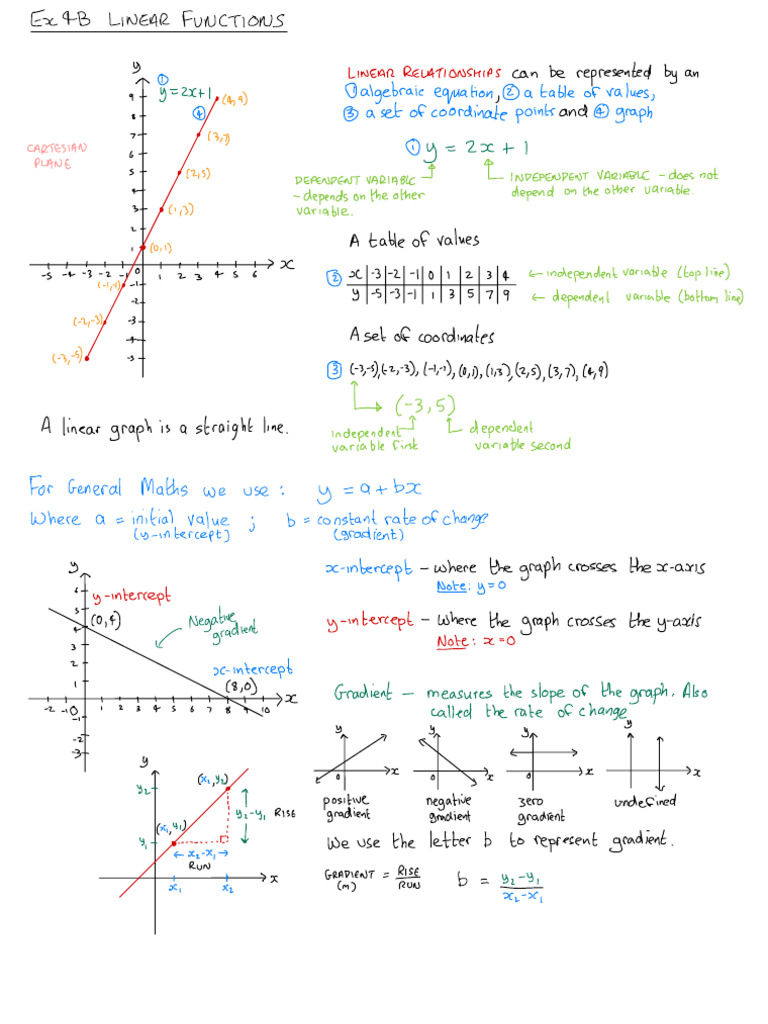 Ex 4B LINEAR FUNCTIONS
LINEAR RELATIONSHIPS can be represented by an
① algebraic equation, ② a table of values,
③ a set of coordinate points and ④ graph
① y = 2x + 1
DEPENDENT VARIABLE
- depends on the other
variable.
INDEPENDENT VARIABLE - does not
depend on the other variable.
y
①
y = 2x+1
④
(4, 9)
(3, 7)
(2, 5)
(1, 3)
(0, 1)
(-1, -1)
(-2, -3)
(-3, -5)
CARTESIAN
PLANE
9
8
7
6
5
4
3
2
1
-5 -4 -3 -2 -1 0 1 2 3 4 5 6 x
-1
-2
-3
-4
-5
A table of values
② x | -3 | -2 | -1 | 0 | 1 | 2 | 3 | 4 ← independent variable (top line)
y | -5 | -3 | -1 | 1 | 3 | 5 | 7 | 9 ← dependent variable (bottom line)
A set of coordinates
③ (-3,-5),(-2,-3), (-1,-1), (0,1), (1,3), (2,5), (3,7), (4,9)
(-3, 5)
independent
variable first
dependent
variable second
A linear graph is a straight line.
For General Maths we use : y = a + bx
Where a = initial value ; b = constant rate of change
(y-intercept) (gradient)
x-intercept - where the graph crosses the x-axis
Note: y=0
y-intercept - where the graph crosses the y-axis
Note: x=0
y
y-intercept
(0, 4)
Negative
gradient
x-intercept
(8, 0)
6
5
4
3
2
1
-2 -1 0 1 2 3 4 5 6 7 8 9 10 x
-1
-2
-3
Gradient - measures the slope of the graph. Also
called the rate of change
y x 0
positive
gradient
y x 0
negative
gradient
y x 0
zero
gradient
y x
undefined
We use the letter b to represent gradient.
GRADIENT = RISE
(m) RUN
b = y₂-y₁
x₂-x₁
y
y₂
(x₁, y₂)
y₂-y₁ RISE
(x₁, y₁)
y₁
← x₂-x₁ →
RUN
x₁ x₂ x